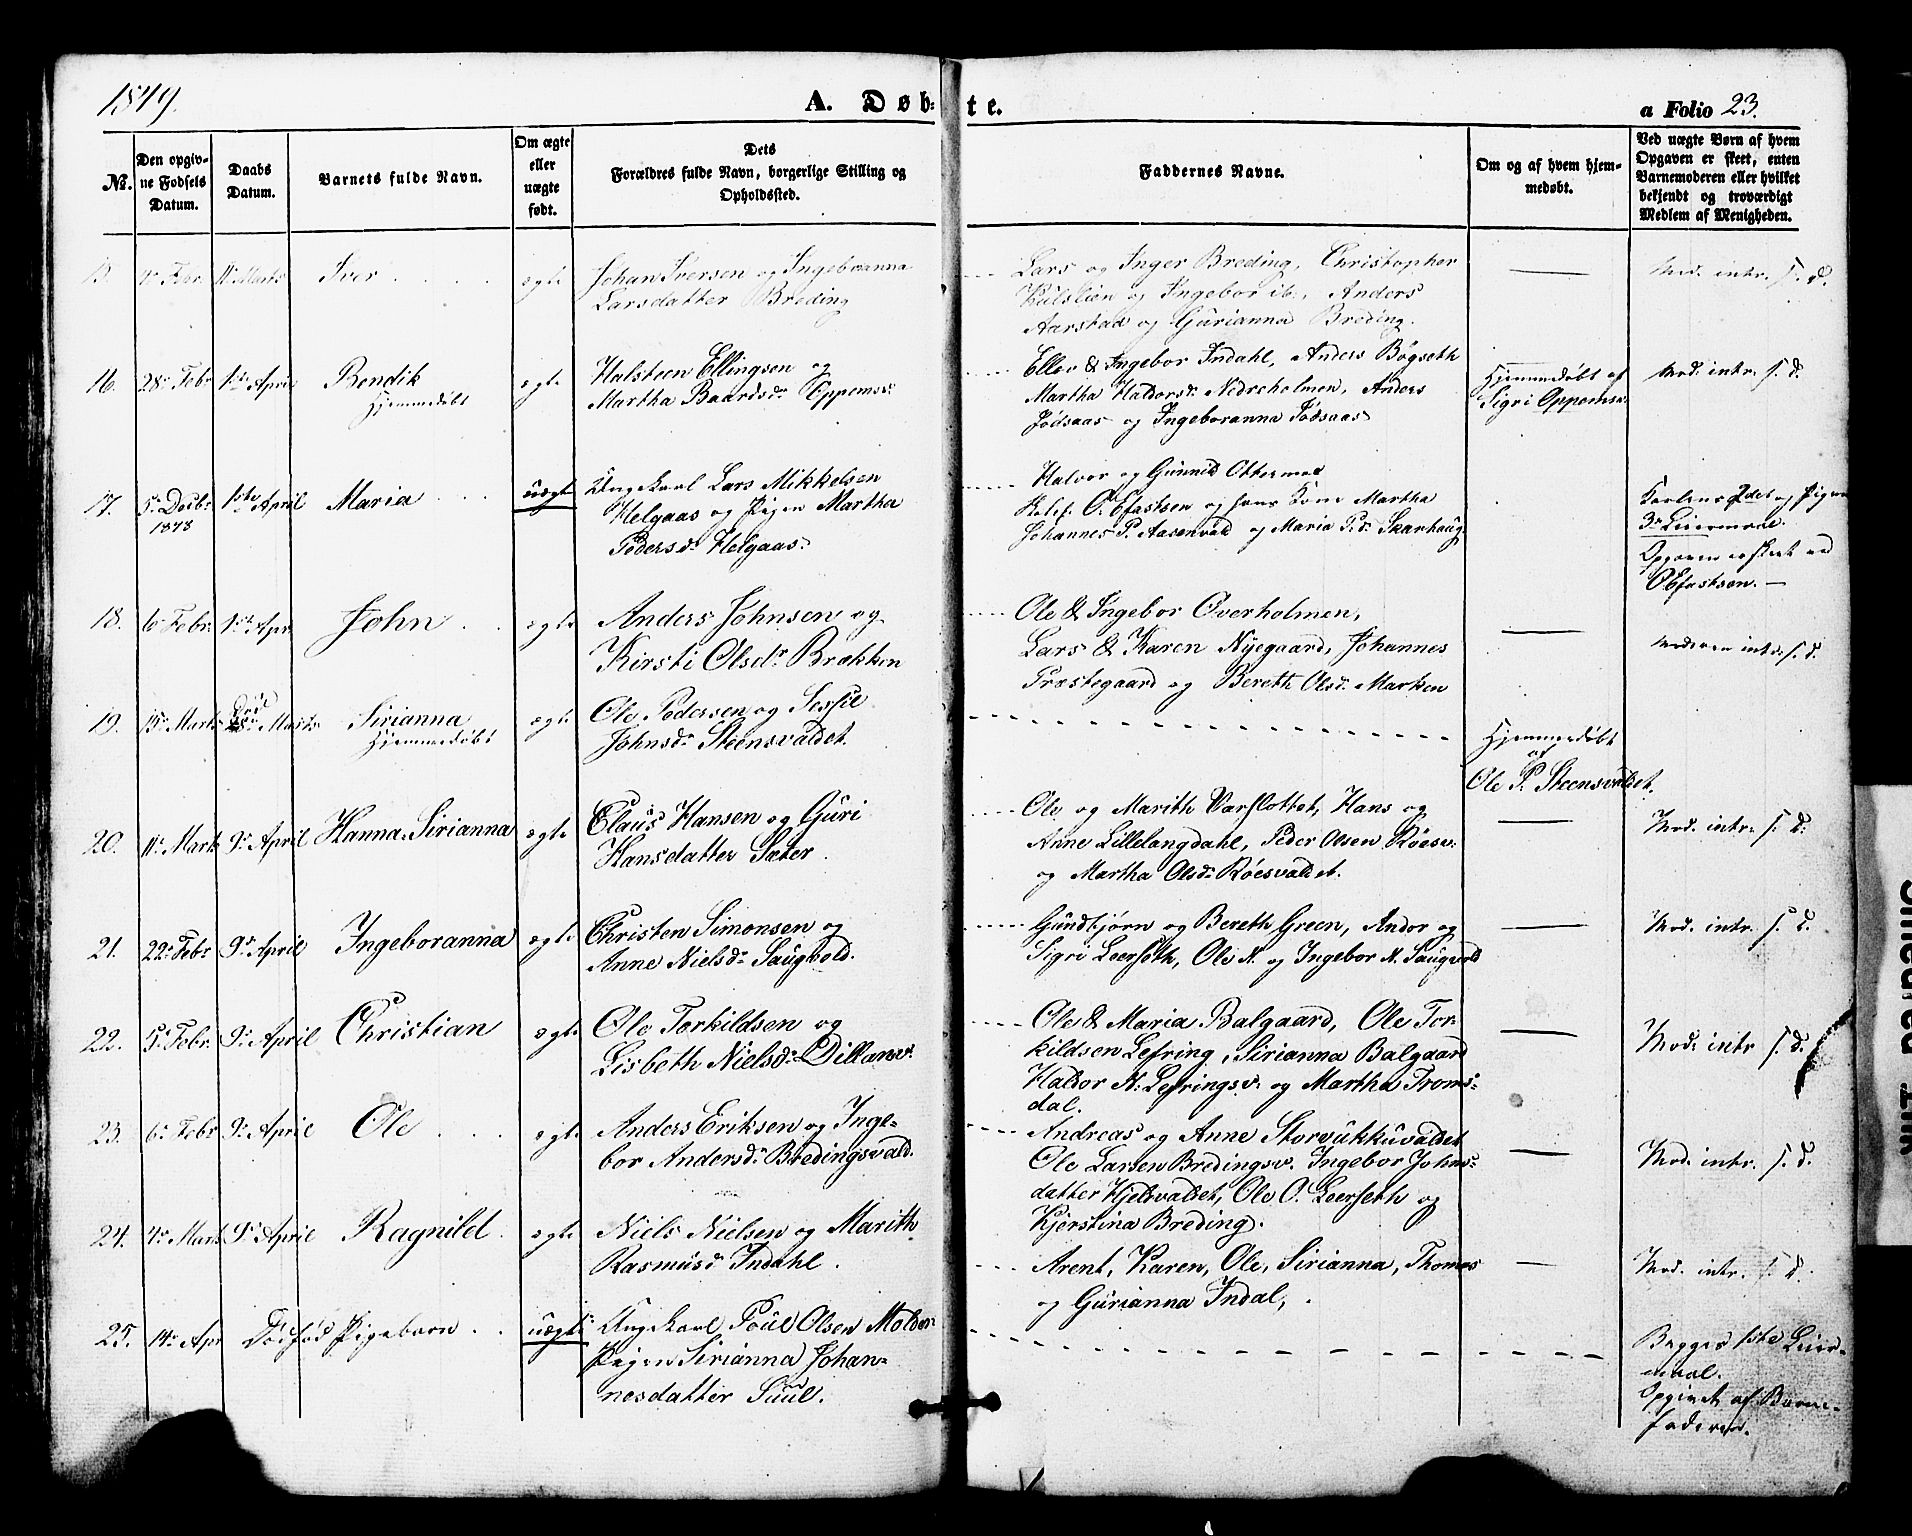 1849.
A. Døb-
te.
a Folio 23.
No.
Den opgiv-
ne Fødsels
Datum.
Daabs
Datum.
Barnets fulde Navn.
Om ægte
eller
uægte
født.
Dets
Forældres fulde Navn, borgerlige Stilling og
Opholdssted.
Faddernes Navne.
Om og af hvem hjem-
medøbt.
Ved uægte Børn af hvem
Opgaven er skeet, enten
Barnemoderen eller hvilket
bekjendt og troværdigt
Medlem af Menigheden.
15. 4de Febr. Marts Iver ægte
Johan Iversen og Ingeboranna
Larsdatter Breding
Lars og Inger Breding, Christopher
Kulslien og Ingebor ib:, Anders
Aarstad og Gurianna Breding.
Mod. intr. s. d.
16. 28de Febr 1ste April Bendik ægte
Hjemmedøbt
Halsteen Ellingsen og
Martha Baardsdr Oppemsv:
Ellev & Ingebor Indahl, Anders Bøgseth
Martha Haldorsdr Nedreholmen, Anders
Jødsaas og Ingeboranna Jødsaas
Hjemmedøbt af
Sigri Oppemsv.
Mod. intr. s. d.
17. 5te Decbr 1ste April Maria uægte
1848
Ungkarl Lars Mikkelsen
Helgaas og Pigen Martha
Pedersdr Helgaas.
Halvor og Gunnild Ottermoe
O. Efastsen og hans Kone Martha
Johannes P. Aasenvald og Maria P.dr Skarhaug
Karlens 2det og Pigens
3de Leiermaal.
Opgaven er skeet ved
O Efastsen. —
18. 6te Febr: 1ste Apr John ægte
Anders Johnsen og
Kirsti Olsdr Brækken
Ole & Ingebor Overholmen,
Lars & Karen Nyegaard, Johannes
Præstegaard og Bereth Olsdr Marken
Moderen intr. s. d.
19. 15de Marts Marts Sirianna ægte
Hjemmedøbt
Ole Pedersen og Sessil
Johnsdr Steensvaldet.
Hjemmedøbt
af
Ole P. Steensvaldet.
20. 11te Marts 9de April Hanna Sirianna ægte
Claus Hansen og Guri
Hansdatter Sæter.
Ole og Marith Varslottet, Hans og
Anne Lillelangdahl, Peder Olsen Røesv:
og Martha Olsdr Røesvaldet.
Mod. intr. s. d.
21. 22de Febr 9de April Ingeboranna ægte
Christen Simonsen og
Anne Nielsdr Saugvold.
Gundbjørn og Bereth Green, Andor og
Sigri Leerseth, Ole N. og Ingebor N. Saugvold
Mod. intr. s. d.
22. 5te Febr. 9de April Christian ægte
Ole Torkildsen og
Lisbeth Nielsdr Dillanv:
Ole & Maria Balgaard, Ole Tor-
kildsen Lefring, Sirianna Balgaard
Haldor N: Lefringsv: og Martha Troms-
dal.
Mod. intr. s. d.
23. 6te Febr 9de April Ole ægte
Anders Eriksen og Inge-
bor Andersdr Bredingsvald.
Andreas og Anne Storvukkuvaldet
Ole Larsen Bredingsv. Ingebor Johns-
datter Hjelsvaldet, Ole O. Leerseth og
Kjerstina Breding.
Mod. intr. s. d.
24. 4de Marts 9de April Ragnild ægte
Niels Nielsen og Marith
Rasmusd Indahl.
Arent, Karen, Ole, Sirianna, Thomas
og Gurianna Indal,
Mod. intr. s. d.
25. 14de Apr Dødfød Pigebarn uægte
Ungkarl Poul Olsen Molder
Pigen Sirianna Johan-
nesdatter Suul.
Begges 1ste Leier-
maal.
Opgivet af Barne-
faderen.